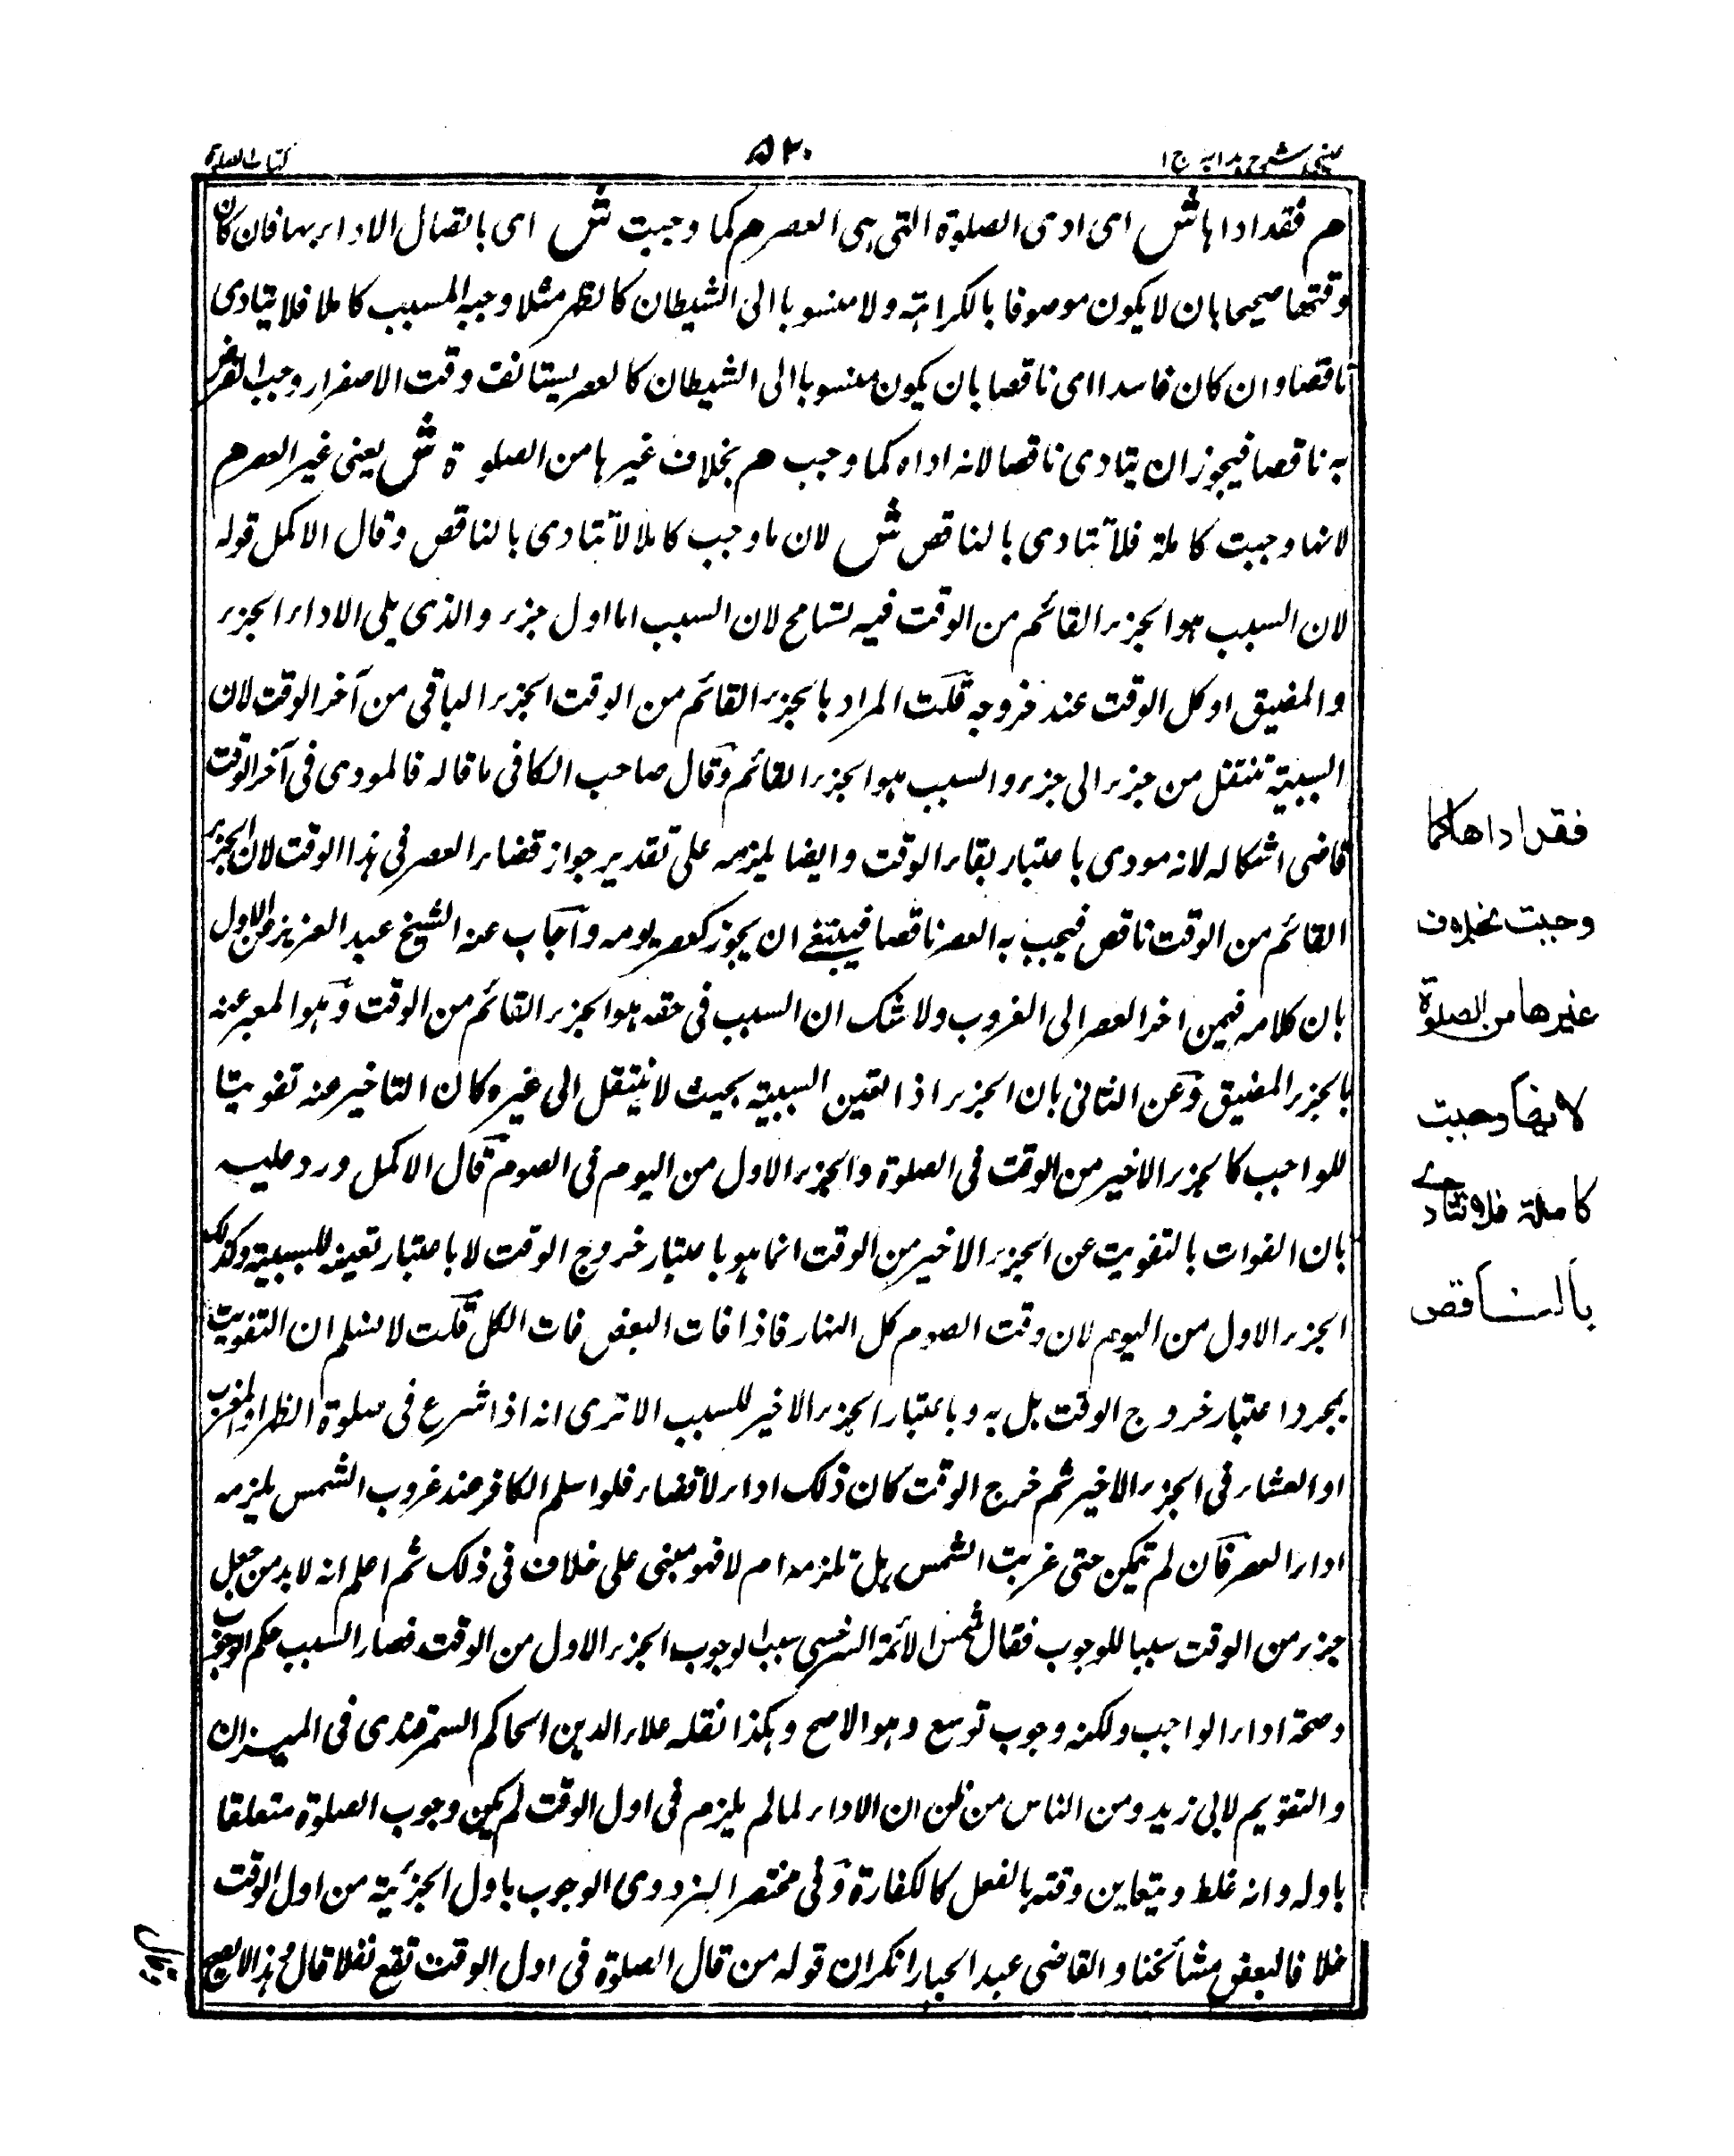 عینی شرح ہدایہ ج ۱
۵۲۰
کتاب الصلوة
م فقد اداہا ش ای ادی الصلوة التی ہی العصر م کما وجبت ش ای باتصال الاداء بہا فان کان
وقتہا صحیحا بان لا یکون موصوفا بالکراہتہ ولا منسوبا الی الشیطان کالظہر مثلا وجبہ المسبب کاملا فلا یتادی
ناقصا وان کان فاسدا ای ناقصا بان یکون منسوبا الی الشیطان کالعصر یستانف وقت الاصفرار وجب الفرض
بہ ناقصا فیجوز ان یتادی ناقصا لانہ اداہ کما وجب م بخلاف غیرہا من الصلوة ش یعنی غیر العصر م
لانہا وجبت کاملة فلا تتادی بالناقص ش لان ما وجب کاملا لا تتادی بالناقص وقال الاکمل قولہ
لان السبب ہو الجزء القائم من الوقت فیہ تسامح لان السبب اما اول جزء والذی یلی الاداء الجزء
والمضیق او کل الوقت عند خروجہ قلت المراد بالجزء القائم من الوقت الجزء الباقی من آخر الوقت لان
السببیة تنتقل من جزء الی جزء والسبب ہو الجزء القائم وقال صاحب الکافی ما قالہ فالمودی فی آخر الوقت
قاضی اشکالہ لانہ مودی باعتبار بقاء الوقت وایضا یلزمہ علی تقدیر جواز قضاء العصر فی ہذا الوقت لان الجزء
القائم من الوقت ناقص فیجب بہ العصر ناقصا فینبغی ان یجوز کعصر یومہ وآجاب عنہ الشیخ عبد العزیز عن الاول
بان کلامہ فیمن اخر العصر الی الغروب ولا شک ان السبب فی حقہ ہو الجزء القائم من الوقت وہو المعبر عنہ
بالجزء المضیق وعن الثانی بان الجزء اذا تعین السببیة بحیث لا ینتقل الی غیرہ کان التاخیر عنہ تفویتا
للواجب کالجزء الاخیر من الوقت فی الصلوة والجزء الاول من الیوم فی الصوم قال الاکمل ورد علیہ
بان الفوات بالتفویت عن الجزء الاخیر من الوقت انما ہو باعتبار خروج الوقت لا باعتبار تعینہ للسببیة وکذلک
الجزء الاول من الیوم لان وقت الصوم کل النہار فاذا فات البعض فات الکل قلت لا نسلم ان التفویت
بمجرد اعتبار خروج الوقت بل بہ وباعتبار الجزء الاخیر للسبب الا تری انہ اذا شرع فی صلوة الظہر او المغرب
او العشاء فی الجزء الاخیر ثم خرج الوقت کان ذلک اداء لا قضاء فلو اسلم الکافر عند غروب الشمس یلزمہ
اداء العصر فان لم یمکن حتی غربت الشمس ہل تلزمہ ام لا فہو مبنی علی خلاف فی ذلک ثم اعلم انہ لا بد من جعل
جزء من الوقت سببا للوجوب فقال شمس الائمة السرخسی سبب الوجوب الجزء الاول من الوقت فصار السبب حکم الوجوب
وصحة اداء الواجب ولکنہ وجوب توسع وہو الاصح وہکذا نقلہ علاء الدین الحاکم السمرقندی فی المیزان
والتقویم لابی زید ومن الناس من ظن ان الاداء لما لم یلزم فی اول الوقت لم یکن وجوب الصلوة متعلقا
باولہ وانہ غلط ویتعاین وقتہ بالفعل کالکفارة وفی مختصر البزدوی الوجوب باول الجزئیة من اول الوقت
خلافا لبعض مشائخنا والقاضی عبد الجبار انکران قولہ من قال الصلوة فی اول الوقت تقع نفلا قال ہذا لا یصح
وقال
فقد اداھا کما
وجبت بخلاف
غیرھا من الصلوة
لانھا وجبت
کاملة فلا تتادے
بالناقص